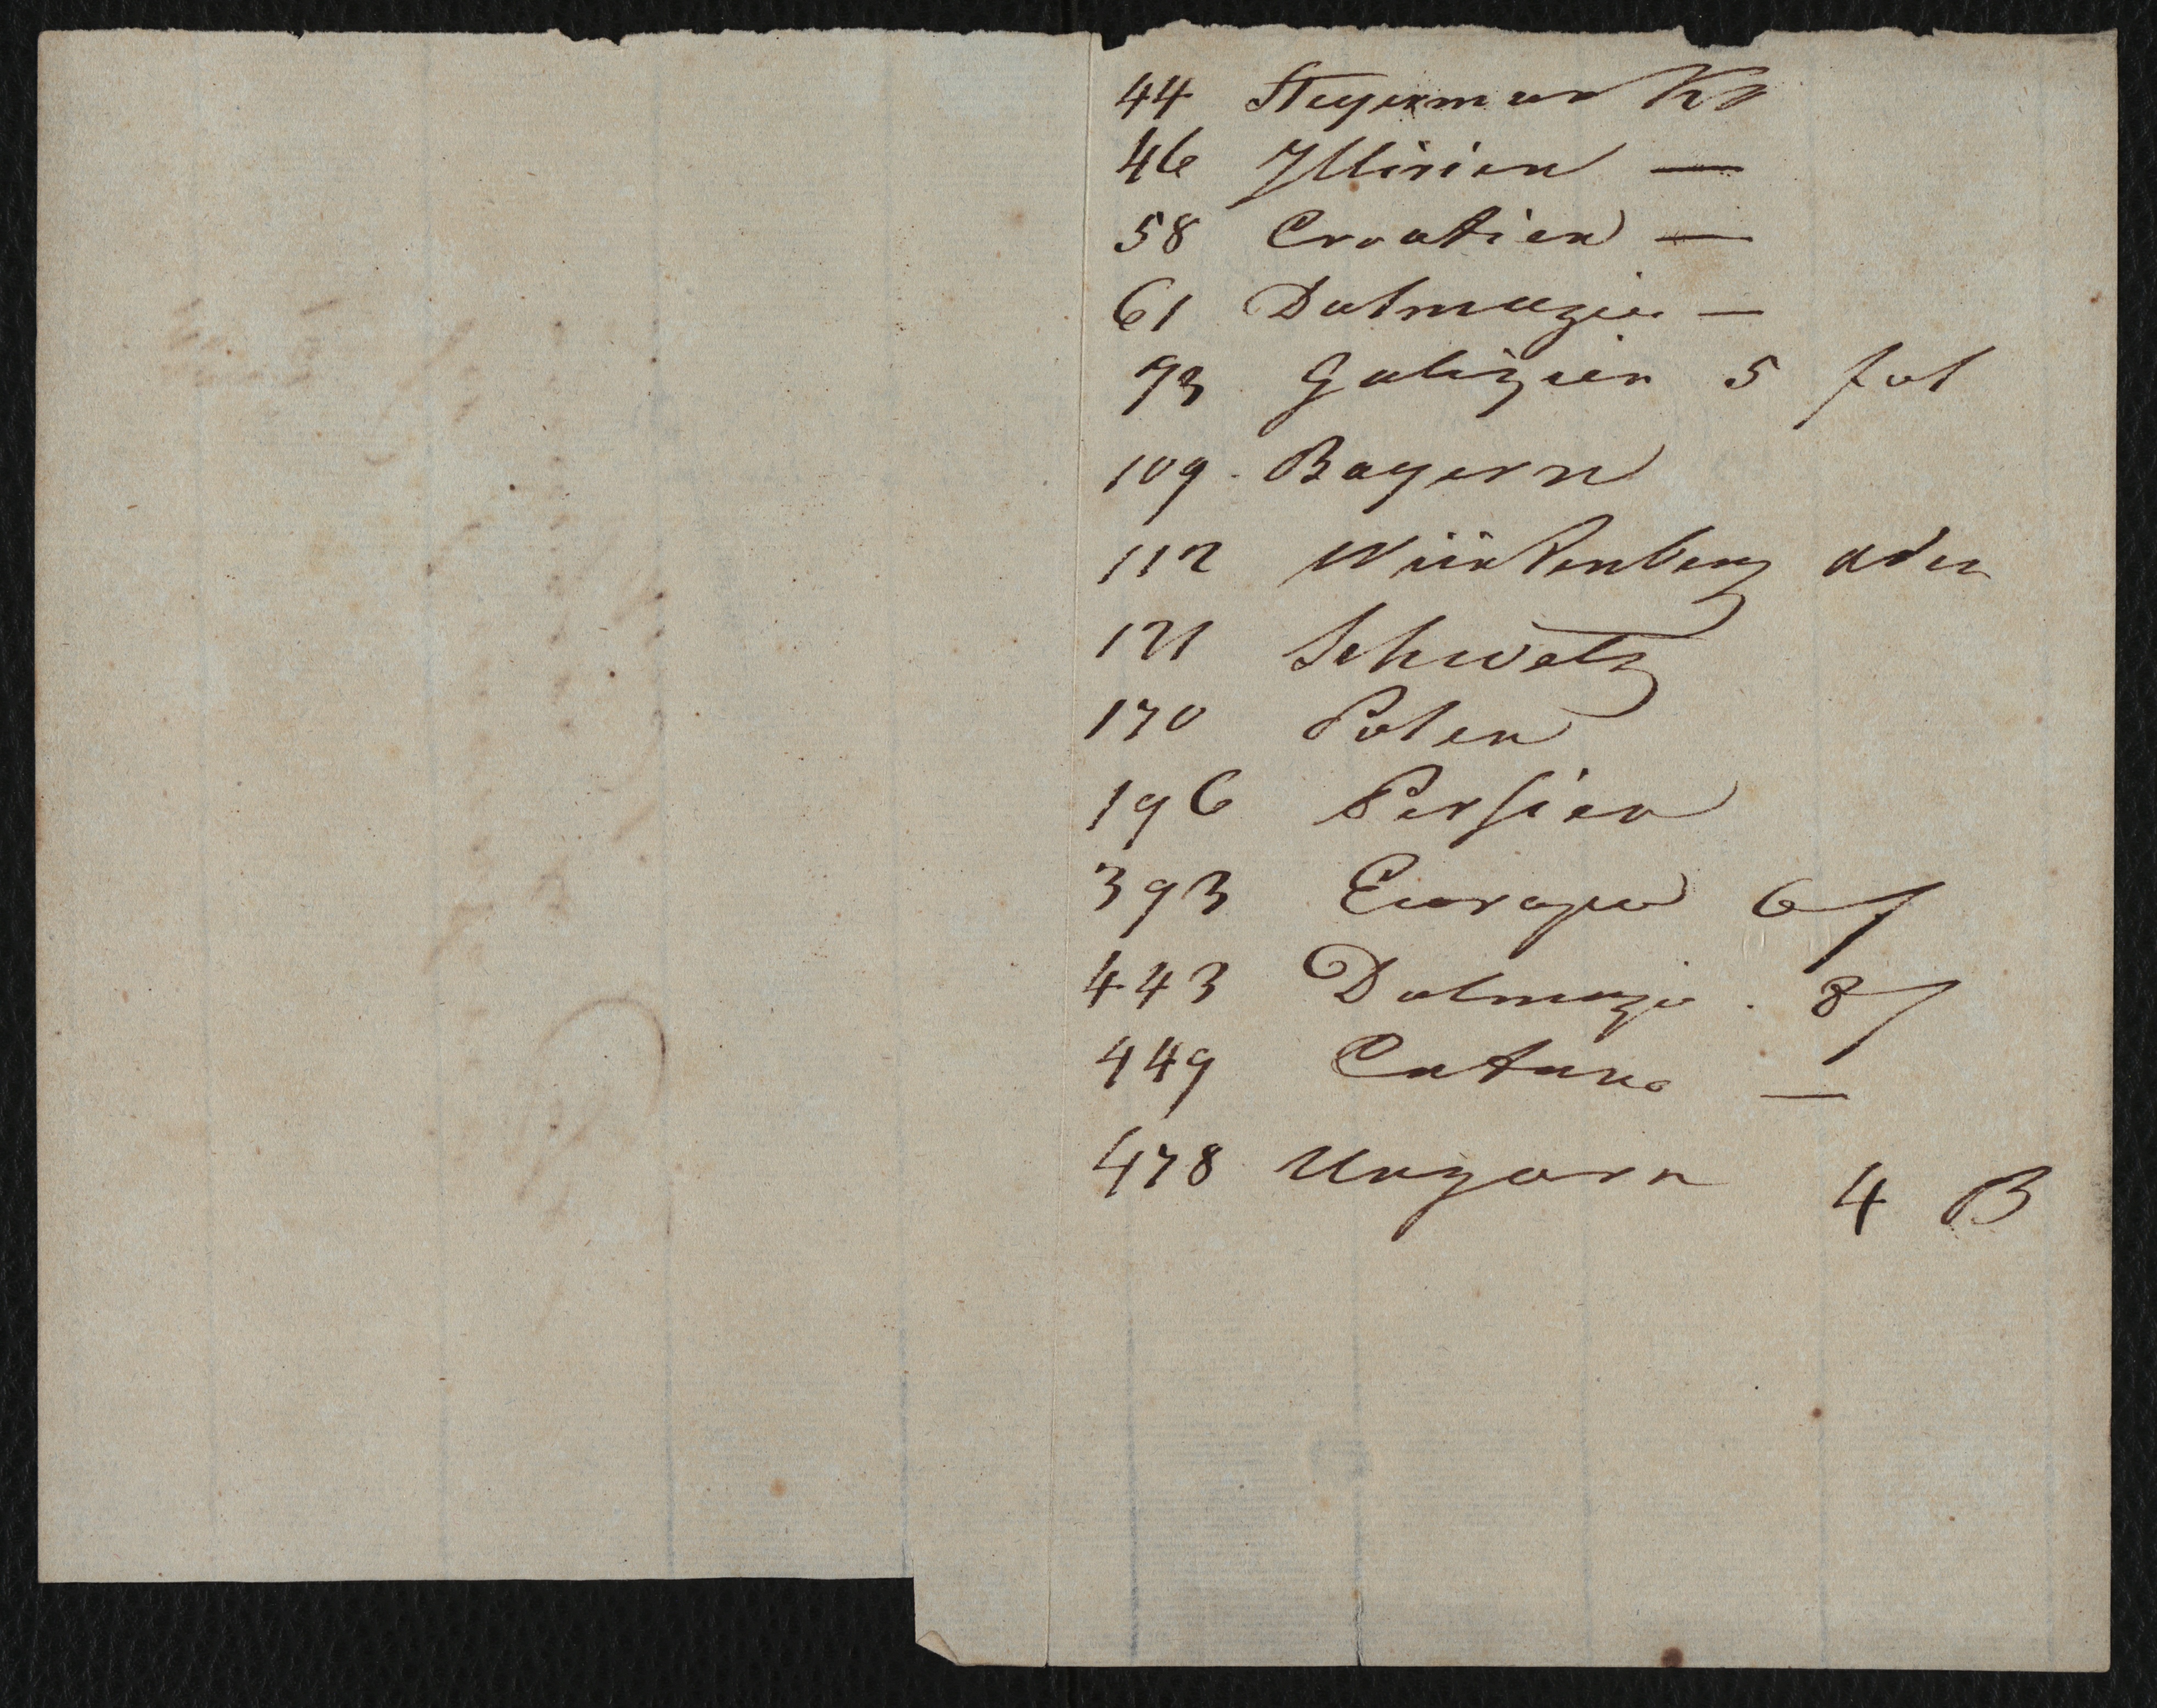 44 Steyermark
46 Illirien —
58 Croatien —
61 Dalmazien —
73 Galizien 5 fol
109. Bayern
112 Würtenberg oder
121 Schweitz
170 Polen
196 Persien
393 Europa 6 f
443 Dalmazie . 8 f
449 Cataro —
478 Ungarn 4 B